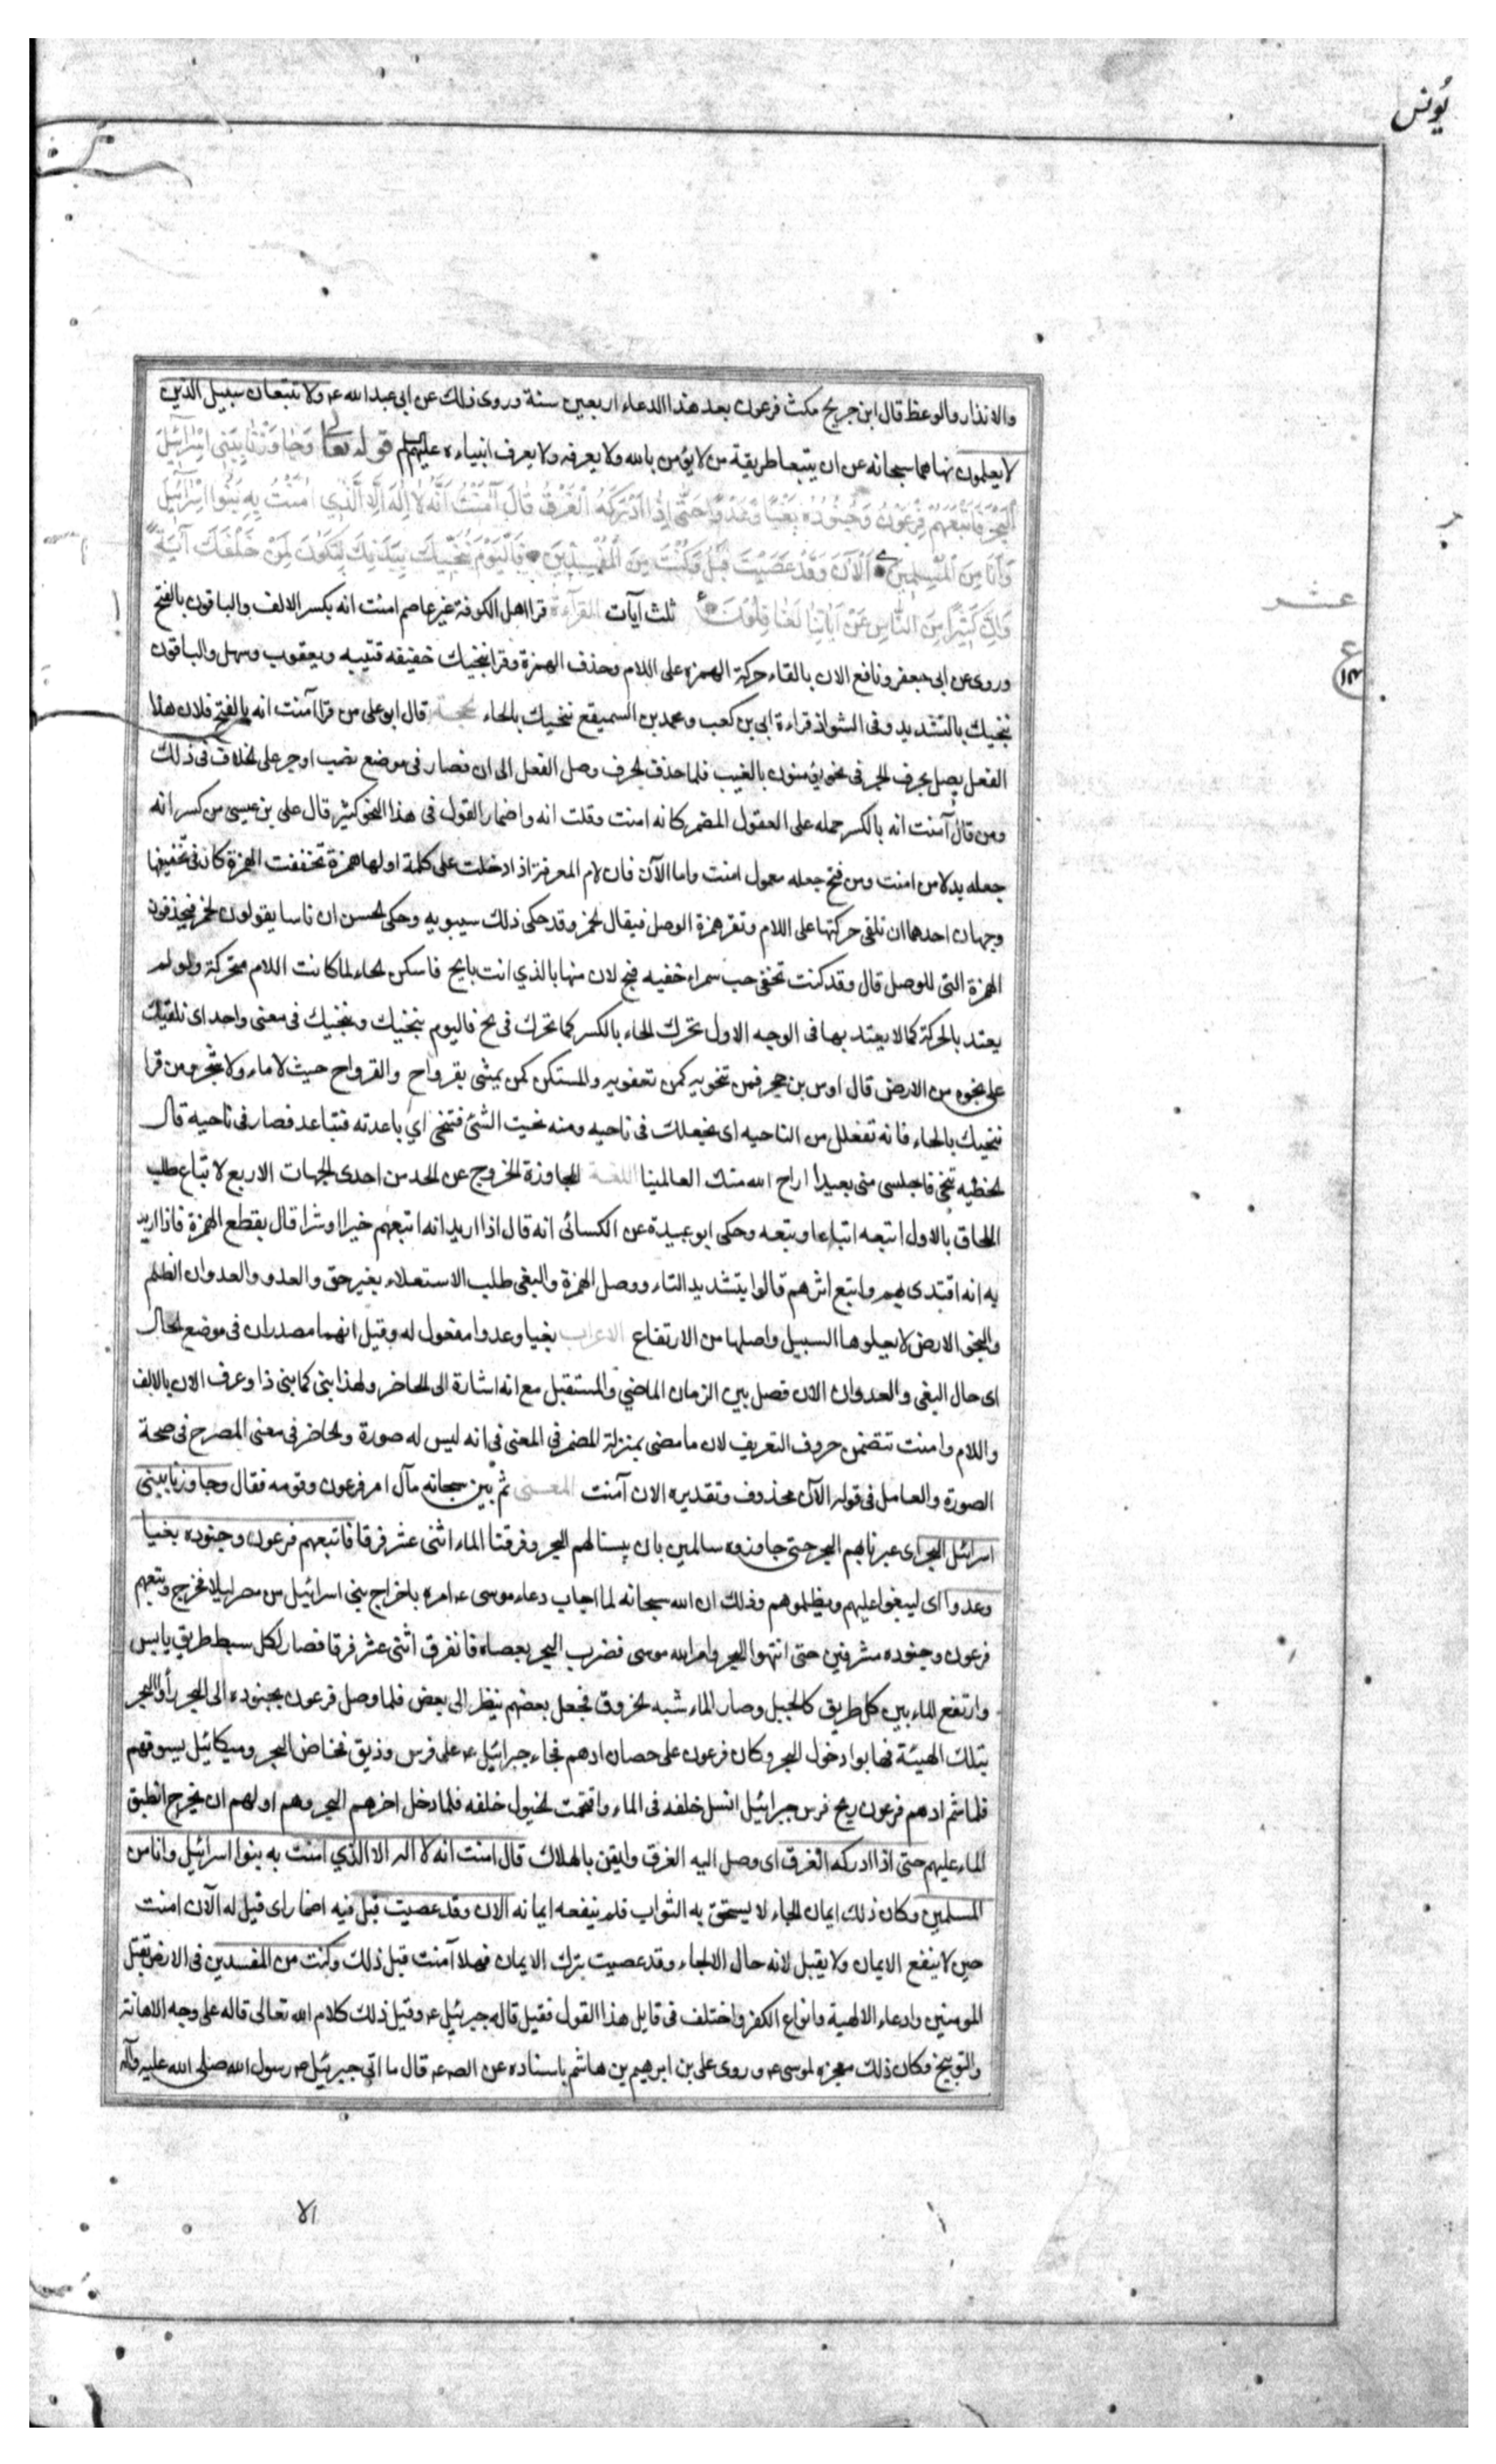 يُونس
والانذار والوعظ قال ابن جريج مكث فرعون بعد هذا الدعاء اربعين سنة وروى ذلك عن ابى عبد الله ع ولا تتبعان سبيل الذين
لا يعلمون نهاهما سبحانه عن ان يتبعا طريقة من لا يؤمن بالله ولا يعرفه ولا يعرف انبياءه عليهم السلم قوله تعالى وَجَاوَزْنَا بِبَنِى اِسْرَائِيلَ
الْبَحْرَ فَاَتْبَعَهُمْ فِرْعَوْنُ وَجُنُودُهُ بَغْيًا وَعَدْوًا حَتَّى اِذَا اَدْرَكَهُ الْغَرَقُ قَالَ آمَنْتُ اَنَّهُ لَا اِلَهَ اِلَّا الَّذِي آمَنَتْ بِهِ بَنُوا اِسْرَائِيلَ
وَاَنَا مِنَ الْمُسْلِمِينَ اَلْآنَ وَقَدْ عَصَيْتَ قَبْلُ وَكُنْتَ مِنَ الْمُفْسِدِينَ فَالْيَوْمَ نُنَجِّيكَ بِبَدَنِكَ لِتَكُونَ لِمَنْ خَلْفَكَ آيَةً
وَاِنَّ كَثِيرًا مِنَ النَّاسِ عَنْ آيَاتِنَا لَغَافِلُونَ ثلث آيات القرآءة قرا اهل الكوفة غير عاصم امنت انه بكسر الالف والباقون بالفتح
عشر
ع
وروى عن ابى جعفر ونافع الان بالقاء حركة الهمزة على اللام وحذف الهمزة وقرا ننجيك خفيفه قتيبه ويعقوب وسهل والباقون
ننجيك بالتشديد وفى الشواذ قراءة ابى بن كعب ومحمد بن السميقع ننحيك بالحاء الحجة قال ابو على من قرا آمنت انه بالفتح فلان هذا
الفعل يصل بحرف الجر فى نحو يؤمنون بالغيب فلما حذف الحرف وصل الفعل الى ان فصار فى موضع نصب او جر على الخلاف فى ذلك
ومن قال آمنت انه بالكسر حمله على القول المضمر كانه امنت وقلت انه واضمار القول فى هذا النحو كثير قال على بن عيسى من كسر انه
جعله بدلا من امنت ومن فتح جعله معمول امنت واما الآن فان لام المعرفة اذ ادخلت على كلمة اولها همزة تخففت الهمزة كان فى تخفيفها
وجهان احدهما ان تلقى حركتها على اللام وتقر همزة الوصل فيقال لحمر وقد حكى ذلك سيبويه وحكى الحسن ان ناسا يقولون لحمر فيحذفون
الهمزة التى للوصل قال وقد كنت تخفى حب سمراء خفيه فبح لان منها بالذي انت بايح فاسكن الحاء لما كانت اللام متحركة ولو لم
يعتد بالحركة كما لا يعتد بها فى الوجه الاول تحرك الحاء بالكسر كما تحرك فى بح فاليوم ننجيك وننجيك فى معنى واحد اى نلقيك
على نجوه من الارض قال اوس بن حجر فمن بنجوته كمن بعقوته والمستكن كمن يمشى بقرواح والقرواح حيث لا ماء ولا شجر ومن قرا
ننحيك بالحاء فانه نفعلك من الناحيه اى نجعلك فى ناحيه ومنه نحيت الشئ فتنحى اي باعدته فتباعد فصار فى ناحيه قال
الحطيه تنحى فاجلسى منى بعيدا اراح الله منك العالمينا اللغة المجاوزة الخروج عن الحد من احدى الجهات الاربع لاتباع طلب
اللحاق بالاول اتبعه اتباعا وتبعه وحكى ابو عبيدة عن الكسائى انه قال اذا اريد انه اتبعهم خيرا او شرا قال بقطع الهمزة فاذا اريد
به انه اقتدى بهم واتبع اثرهم قالوا بتشديد التاء ووصل الهمزة والبغى طلب الاستعلاء بغير حق والعدو والعدوان الظلم
والنجو الارض لا يعلوها السبيل واصلها من الارتفاع الاعراب بغيا وعدوا مفعول له وقيل انهما مصدران فى موضع الحال
اى حال البغى والعدوان الان فصل بين الزمان الماضي والمستقبل مع انه اشارة الى الحاضر ولهذا بنى كما بنى ذا وعرف الان بالالف
واللام وامنت تتضمن حروف التعريف لان ما مضى بمنزلة المضمر فى المعنى فى انه ليس له صورة والحاضر فى معنى المصرح فى صحة
الصورة والعامل فى قوله الآن محذوف وتقديره الان آمنت المعنى ثم بين سبحانه مآل امر فرعون وقومه فقال وجاوزنا ببنى
اسرائيل البحر اى عبرنا بهم البحر حتى جاوزوه سالمين بان يبسنا لهم البحر وفرقنا الماء اثنى عشر فرقا فاتبعهم فرعون وجنوده بغيا
وعدوا اى ليبغوا عليهم ويظلموهم وذلك ان الله سبحانه لما اجاب دعاء موسى ع امره باخراج بنى اسرائيل من مصر ليلا فخرج وتبعهم
فرعون وجنوده مشرقين حتى انتهوا البحر وامر الله موسى فضرب البحر بعصاه فانفرق اثنى عشر فرقا فصار لكل سبط طريق يابس
وارتفع الماء بين كل طريق كالجبل وصار الماء شبه الخروق فجعل بعضهم ينظر الى بعض فلما وصل فرعون بجنوده الى البحر رأوا البحر
بتلك الهيئة فهابوا دخول البحر وكان فرعون على حصان ادهم فجاء جبرائيل ع على فرس وديق فخاض البحر وميكائيل يسوقهم
فلما شم ادهم فرعون ريح فرس جبرائيل انسل خلفه فى الماء واقتحمت الخيول خلفه فلما دخل اخرهم البحر وهم اولهم ان يخرج انطبق
الماء عليهم حتى اذا ادركه الغرق اى وصل اليه الغرق وايقن بالهلاك قال امنت انه لا اله الا الذي امنت به بنوا اسرائيل وانا من
المسلمين وكان ذلك ايمان الجاء لا يستحق به الثواب فلم ينفعه ايمانه الان وقد عصيت قبل فيه اضمار اى قيل له الآن امنت
حين لا ينفع الايمان ولا يقبل لانه حال الالجاء وقد عصيت بترك الايمان فهلا آمنت قبل ذلك وكنت من المفسدين فى الارض بقتل
المومنين وادعاء الالهية وانواع الكفر واختلف فى قايل هذا القول فقيل قاله جبرئيل ع وقيل ذلك كلام الله تعالى قاله على وجه الاهانة
والتوبيخ وكان ذلك معجزه لموسى ع وروى على بن ابرهيم بن هاشم باسناده عن الص ع قال ما اتى جبرئيل ع رسول الله صلى الله عليه وآله